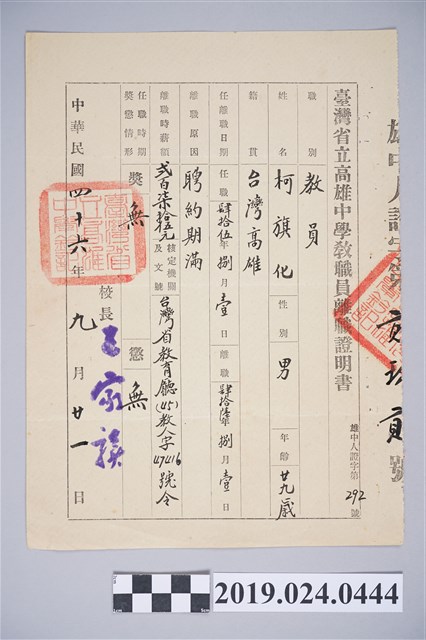 臺灣省立高雄中學教職員離職證明書
雄中人證字第292號
職別 教員
姓名 柯旗化 性別 男 年齡 廿九歲
籍貫 台灣高雄
任離職日期 任職肆拾伍年捌月壹日 離職肆拾陸年捌月壹日
離職原因 聘約期滿
離職時薪額 弍百柒拾元 核定機關及文號 台灣省教育廳(45)教人字47416號令
任職時期獎懲情形 獎 無 懲 無
校長 王家驥
中華民國四十六年九月廿一日
2019.024.0444